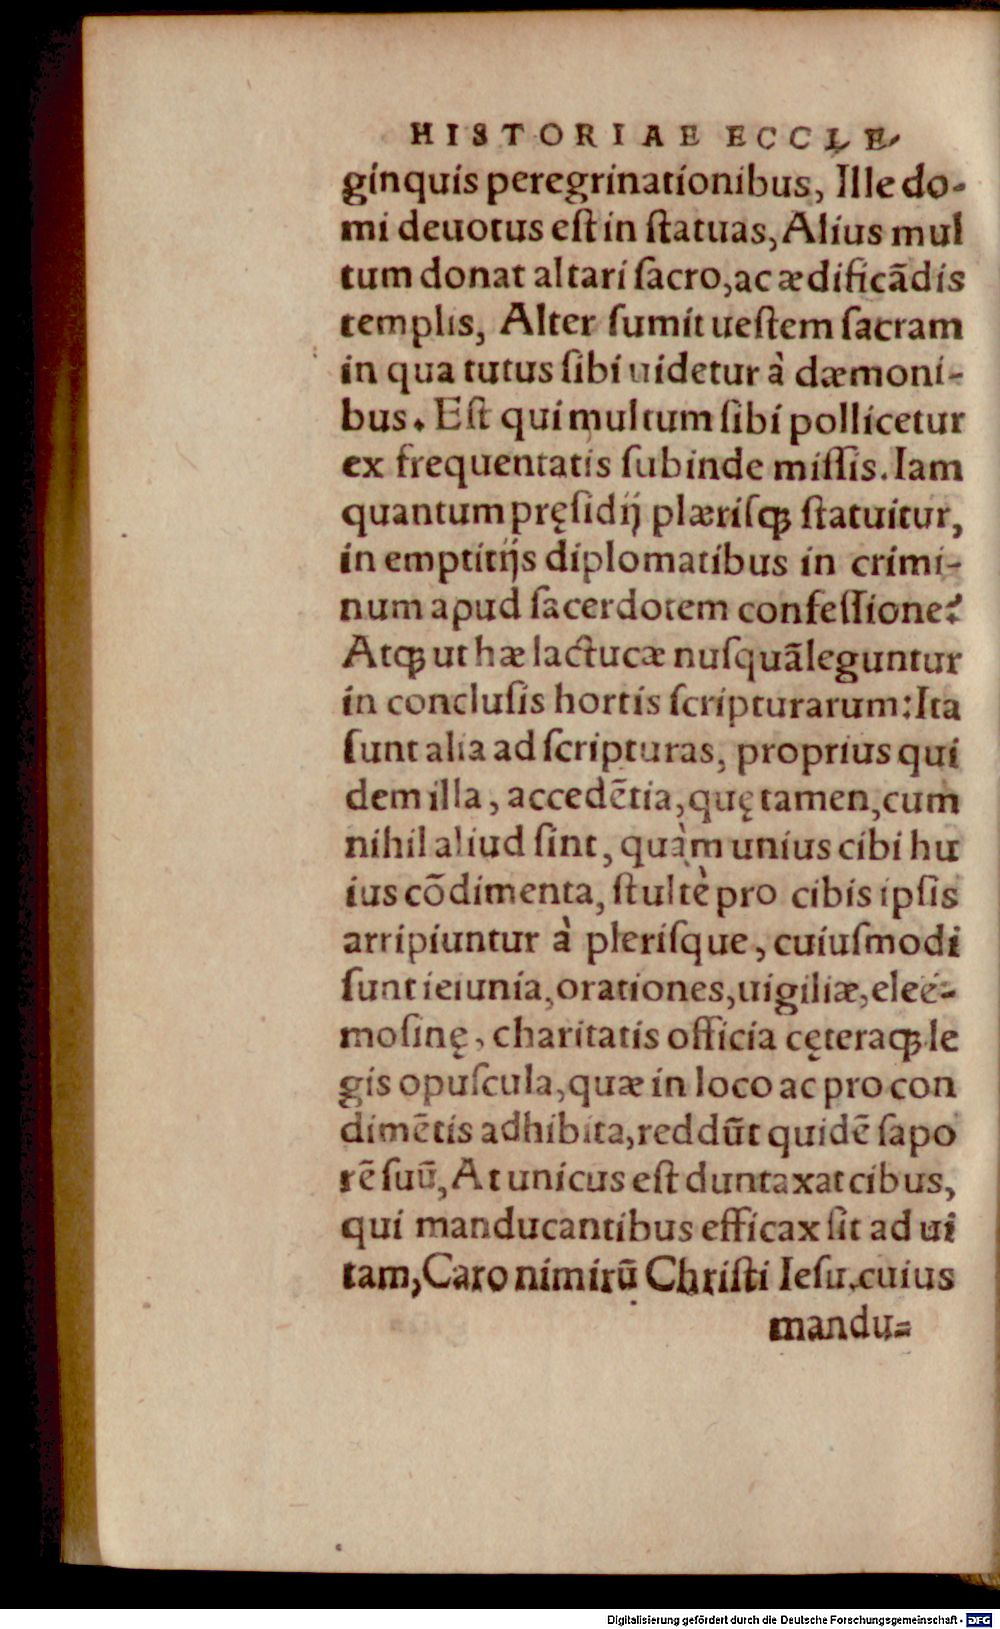 HISTORIAE ECCLE-
ginquis peregrinationibus, Ille do-
mi deuotus eſt in ſtatuas, Alius mul
tum donat altari ſacro, ac ædificãdis
templis, Alter ſumit ueſtem ſacram
in qua tutus ſibi uidetur à dæmoni-
bus. Eſt qui multum ſibi pollicetur
ex frequentatis ſubinde miſſis. Iam
quantum pręſidij plæriſꝗ ſtatuitur,
in emptitijs diplomatibus in crimi-
num apud ſacerdotem confeſſione?
Atꝗ ut hæ lactucæ nuſquã leguntur
in concluſis hortis ſcripturarum: Ita
ſunt alia ad ſcripturas, proprius qui
dem illa, accedẽtia, quę tamen, cum
nihil aliud ſint, quàm unius cibi hu
ius cõdimenta, ſtultè pro cibis ipſis
arripiuntur à pleriſque, cuiuſmodi
ſunt ieiunia, orationes, uigiliæ, eleé-
moſinę, charitatis officia cęteraꝗ le
gis opuſcula, quæ in loco ac pro con
dimẽtis adhibita, reddũt quidẽ ſapo
rẽ ſuũ, At unicus eſt duntaxat cibus,
qui manducantibus efficax ſit ad ui
tam, Caro nimirũ Chriſti Ieſu. cuius
mandu-
Digitalisierung gefördert durch die Deutsche Forschungsgemeinschaft - DFG